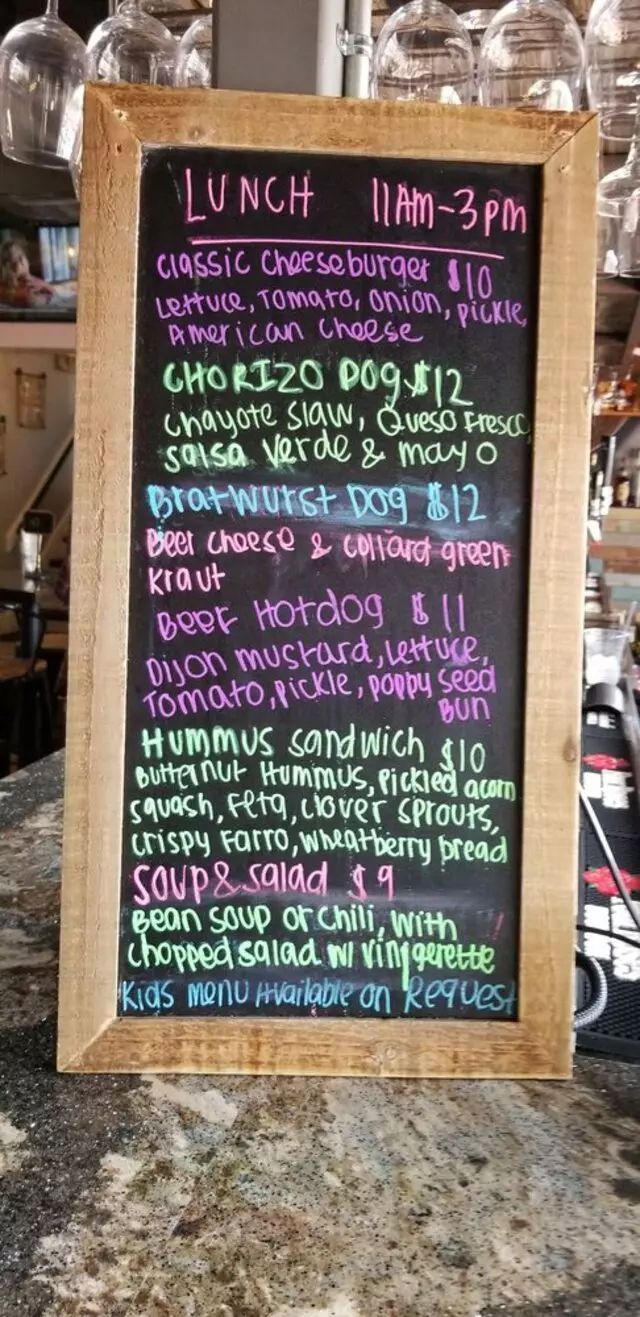 LUNCH 11AM-3pm
Classic Cheeseburger $10
Lettuce, Tomato, Onion, pickle,
American Cheese
CHORIZO DOG $12
Chayote Slaw, Queso Fresco,
Salsa Verde & mayo
Bratwurst Dog $12
Beer Cheese & Collard green
Kraut
Beer Hotdog $11
Dijon mustard, Lettuce,
Tomato, pickle, poppy Seed
Bun
Hummus Sandwich $10
Butternut Hummus, Pickled acorn
Squash, Feta, Clover Sprouts,
Crispy Farro, Wheatberry bread
SOUP & Salad $9
Bean Soup or Chili, with
Chopped Salad w/ Vinigerette
Kids menu Available on Request